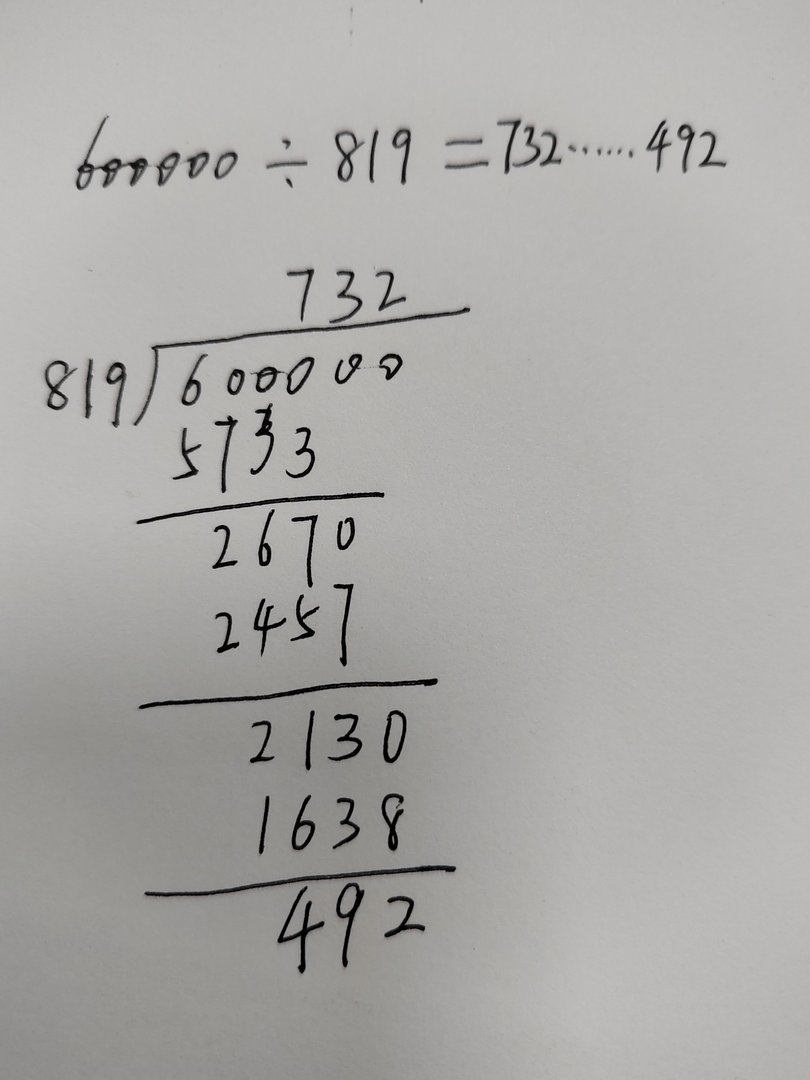 600000 ÷ 819 = 732······492
732
819)600000
5733
2670
2457
2130
1638
492